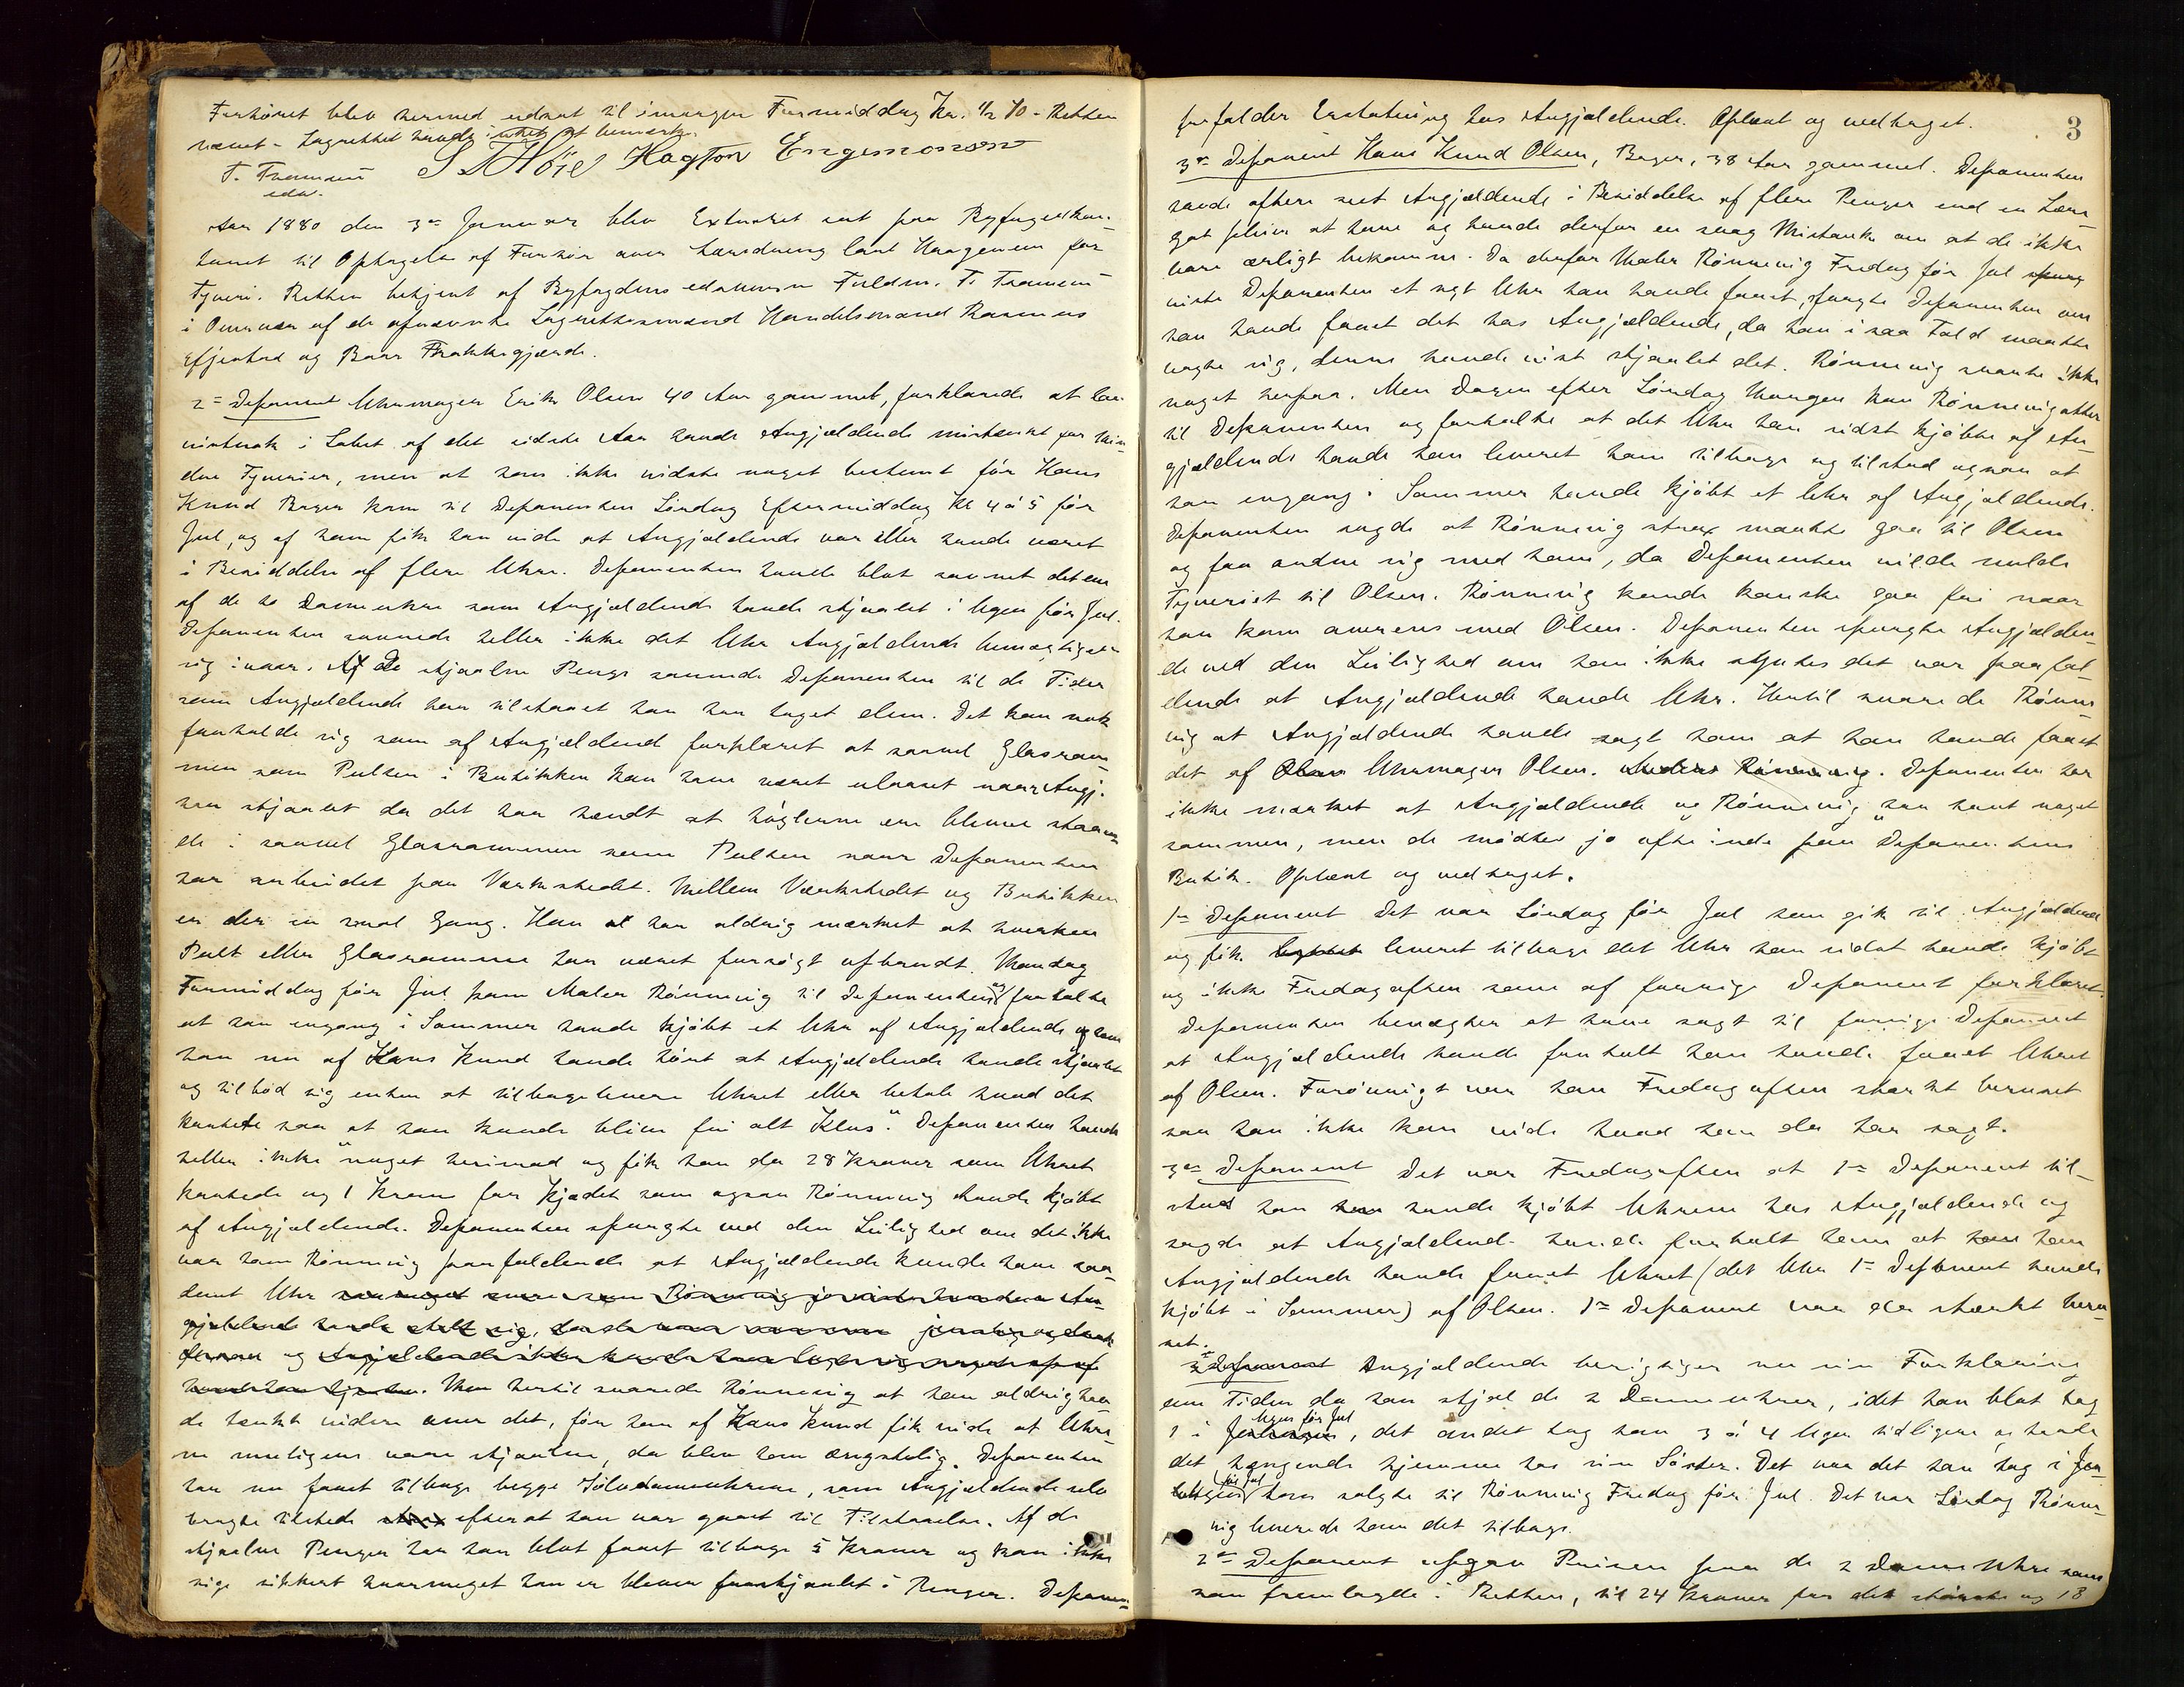 Forhöret blev hermed udsat til imorgen Formiddag Kl. ½ 10 - Retten
hævet - Lagrettet havde intet at bemærke.
S T Höie Hagtor Engemonsen
F. Tramsen
edsv.
Aar 1880 den 3die Januar blev Extraret sat paa Byfogedkon-
toret til Optagelse af Forhör over Lars Haagensen for
Tyveri. Retten betjent af Byfogdens edsvorne Fuldm. F. Tramsen
i Overvær af de opnævnte Lagrettesmænd Handelsmand Rasmus
Efjestad og Baar Frakkegjærde.
2den Deponent Uhrmager Erik Olsen 40 Aar gammel, forklarede at han
vistnok i Löbet af det sidste Aar havde Angjældende mistænkt for Min-
dre Tyverier, men at han ikke vidste noget bestemt för Hans
Knud Bager kom til Deponenten Löverdag Eftermiddag Kl 4 á 5 för
Jul, og af ham fik han vide at Angjældende var eller havde været
i Besiddelse af flere Uhre. Deponenten havde blot savnet det ene
af de to Dameuhre som Angjældende havde stjaalet i Ugen för Jul.
Deponenten savnede heller ikke det Uhr Angjældende bemægtiget
sig ivaar. Af De stjaalne Penge savnede Deponenten til de Tider
som Angjældende har tilstaaet han har taget dem. Det kan nok
forholde sig som af Angjældende forklaret at saavel Glasram-
men som Pulten i Butikken kan have været ulaaset naar Angj.
har stjaalet da det har hændt at Nöglerne ere blevne staaen-
de i saavel Glasrammen som Pulten naar Deponenten
har arbeidet paa Værkstedet. Mellem Værkstedet og Butikken
er der en smal Gang. Han har aldrig mærket at hverken
Pult eller Glasramme har været forsögt opbrudt. Mandag
Formiddag för Jul kom Maler Rönnevig til Deponenten og fortalte
at han engang i Sommer havde kjöbt et Uhr af Angjældende og som
han nu af Hans Knud havde hört at Angjældende havde stjaalet
og tilböd sig enten at tilbagelevere Uhret eller betale hvad det
kostede saa at han kunde blive fri alt Klus." Deponenten havde
heller ikke noget herimod og fik han da 28 Kroner som Uhret
kostede og 1 Krone for Kjædet som ogsaa Rönnevig havde kjöbt
af Angjældende. Deponenten spurgte ved den Leilighed om det ikke
var ham Rönnevig paafaldende at Angjældende kunde have saa-
dant Uhr
og
Men hertil svarede Rönnevig at han aldrig hav-
de tænkt videre over det, för han af Hans Knud fik vide at Uhre-
ne muligens vare stjaalne, da blev han ængstelig. Deponenten
har nu faaet tilbage begge Sölvdameuhrene, som Angjældende selv
bragte tilstede efterat han var gaaet til Tilstaaelse. Af de
stjaalne Penger har han blot faaet tilbage 5 Kroner og kan ikke
sige sikkert hvormeget han er bleven frastjaalet i Penger. Deponen-
3
ten falder Erstatning hos Angjældende. Oplæst og vedtaget.
3die Deponent Hans Knud Olsen, Bager, 38 Aar gammel. Deponenten
havde oftere seet Angjældende i Besiddelse af flere Penger end en Lære-
gut pleier at have og havde derfor en svag Mistanke om at de ikke
vare ærligt bekomne. Da derfor Maler Rönnevig Fredag för Jul
viste Deponenten et nyt Uhr han havde faaet, spurgte Deponenten om
han havde faaet det hos Angjældende, da han i saa Fald maatte
vogte sig, denne havde vist stjaalet det. Rönnevig svarte ikke
noget herpaa. Men Dagen efter Löverdag Morgen kom Rönnevig atter
til Deponenten og fortalte at det Uhr han sidst kjöbte af An-
gjældende havde han leveret ham tilbage og tilstod ogsaa at
han engang i Sommer havde kjöbt et Uhr af Angjældende.
Deponenten sagde at Rönnevig strax maatte gaa til Olsen
og faa ordne sig med ham, da Deponenten vilde melde
Tyveriet til Olsen. Rönnevig kunde kanske gaa fri naar
han kom overens med Olsen. Deponenten spurgte Angjælden-
de ved den Leilighed om han ikke syntes det var paafal-
dende at Angjældende havde Uhr. Hertil svarede Rönne-
vig at Angjældende havde sagt ham at han havde faaet
det af Uhrmager Olsen. Deponenten har
ikke mærket at Angjældende og Rönnevig har havt noget
sammen, men de mödtes jo ofte inde paa Deponentens
Butik. Oplæst og vedtaget.
1ste Deponent Det var Löverdag för Jul han gik til Angjældende
og fik leveret tilbage det Uhr han sidst havde kjöbt
og ikke Fredagaften som af forrige Deponent forklaret.
Deponenten benægter at have sagt til forrige Deponent
at Angjældende havde fortalt han havde faaet Uhret
af Olsen. Forövrigt var han Fredagaften stærkt beruset
saa han ikke kan vide hvad han da har sagt.
3die Deponent Det var Fredagaften at 1ste Deponent til-
stod han havde kjöbt Uhrene hos Angjældende og
sagde at Angjældende havde fortalt ham at han
Angjældende havde faaet Uhret (det Uhr 1ste Deponent havde
kjöbt i Sommer) af Olsen. 1ste Deponent var da stærkt beru-
set.
Angjældende berigtiger nu sin Forklaring
om Tiden da han stjal de 2 Dameuhrer, idet han blot tog
1 i Ugen för Jul, det andet tog han 3 á 4 Uger tidligere og havde
det hængende hjemme hos sin Söster. Det var det han tog i
Ugen för Jul han solgte til Rönnevig Fredag för Jul. Det var Lördag Rönne-
vig leverede ham det tilbage.
2den Deponent opgav Prisen paa de 2 Dame Uhre som
han fremlagde i Retten, til 24 Kroner for det störste og 18